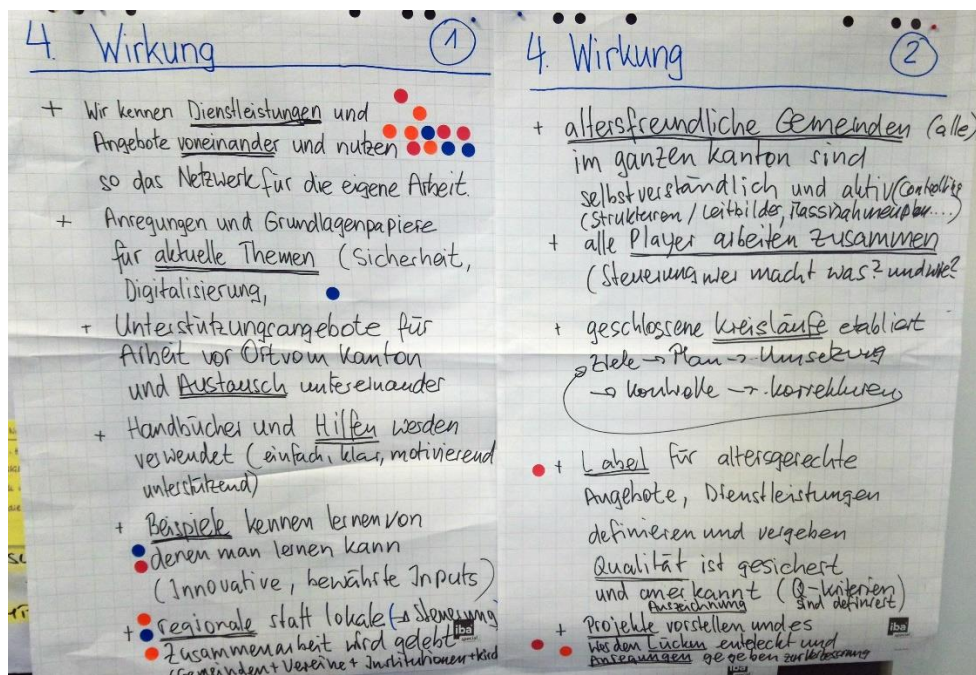 4. Wirkung 1
+ Wir kennen Dienstleistungen und
Angebote voneinander und nutzen
so das Netzwerk für die eigene Arbeit.
+ Anregungen und Grundlagenpapiere
für aktuelle Themen (Sicherheit,
Digitalisierung,
+ Unterstützungsangebote für
Arbeit vor Ort vom Kanton
und Austausch untereinander
+ Handbücher und Hilfen werden
verwendet (einfach, klar, motivierend
unterstützend)
+ Beispiele kennen lernen von
denen man lernen kann
(Innovative, bewährte Inputs)
+ regionale statt lokale (→ Steuerung)
Zusammenarbeit wird gelebt
(Gemeinden + Vereine + Institutionen +
iba
4. Wirkung 2
+ altersfreundliche Gemeinden (alle)
im ganzen Kanton sind
selbstverständlich und aktiv (Controlling
(Strukturen / Leitbilder, Massnahmenplan ....)
+ alle Player arbeiten zusammen
(Steuerung wer macht was? und wie?
+ geschlossene Kreisläufe etabliert
Ziele → Plan → Umsetzung
→ Kontrolle → Korrekturen
+ Label für altersgerechte
Angebote, Dienstleistungen
definieren und vergeben
Qualität ist gesichert
und anerkannt (Q-Kriterien
Auszeichnung sind definiert)
+ Projekte vorstellen und es
werden Lücken entdeckt und
Anregungen gegeben zur Verbesserung
iba